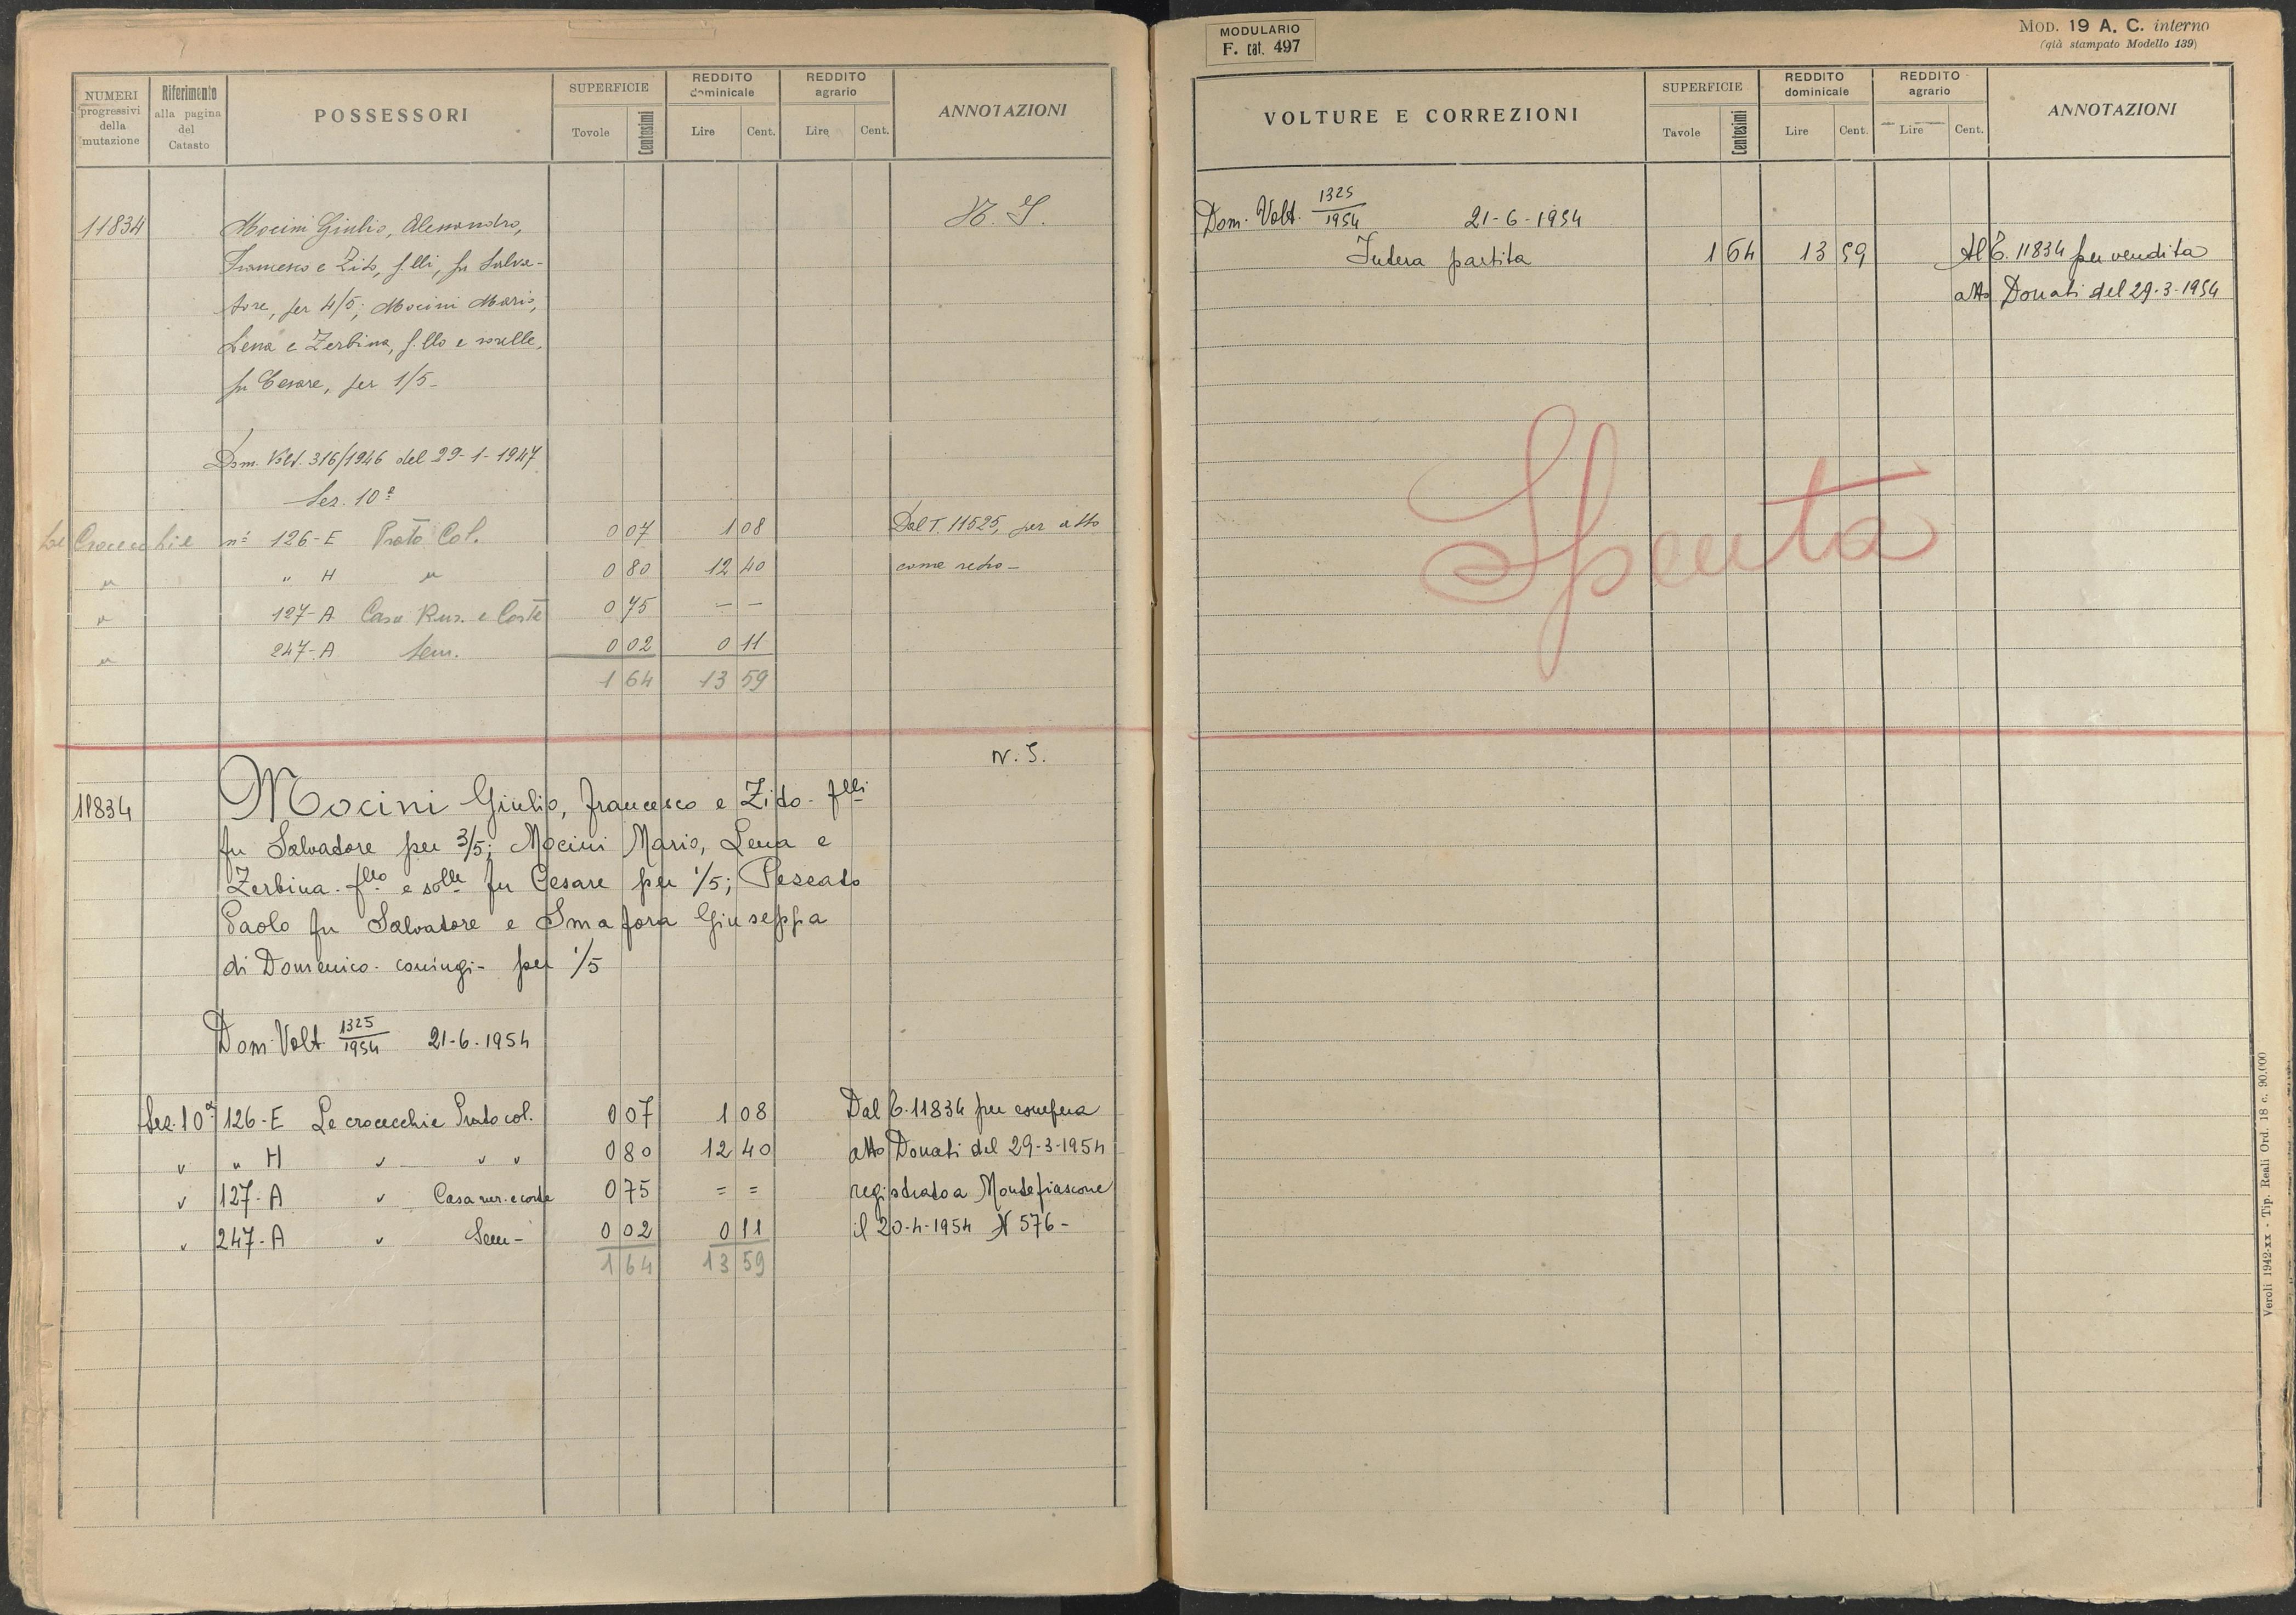 NUMERI progressivi della mutazione
Riferimento alla pagina del Catasto
POSSESSORI
SUPERFICIE
Tovole
Centesimi
REDDITO dominicale
Lire
Cent.
REDDITO agrario
Lire
Cent.
ANNOTAZIONI
11834
Mocini Giulio, Alessandro,
Francesco e Zito, f.lli, fu Salva-
tore, per 4/5; Mocini Mario,
Lena e Zerbina, f.llo e sorelle,
fu Cesare, per 1/5-
Dom. Volt. 316/1946 del 29-1-1947
Sez. 10ª
Le Crocecchie nº 126-E Prato Col. 0 07 1 08 Dal T. 11525, per atto
" " H " 0 80 12 40 come retro-
" 127-A Casa Rur. e Corte 0 75 - -
" 247-A Sem. 0 02 0 11
1 64 13 59
N. S.
11834 Mocini Giulio, Francesco e Zito - flli
fu Salvadore per 3/5; Mocini Mario, Lena e
Zerbina - fllo e solle fu Cesare per 1/5; Pescato
Paolo fu Salvadore e Smafora Giuseppa
di Domenico - coniugi - per 1/5
Dom. Volt. 1325/1954 21-6-1954
Sez. 10ª 126-E Le crocecchie Prato col. 0 07 1 08 Dal
" " H " " " 0 80 12 40 atto Donati del 29-3-1954
" 127-A " Casa rur. e corte 0 75 = = registrato a Montefiascone
" 247-A " Sem- 0 02 0 11 il 20-4-1954 N 576-
1 64 13 59
MODULARIO
F. cat. 497
MOD. 19 A. C. interno
(già stampato Modello 139)
VOLTURE E CORREZIONI
SUPERFICIE
Tavole
Centesimi
REDDITO dominicale
Lire
Cent.
REDDITO agrario
Lire
Cent.
ANNOTAZIONI
Dom. Volt. 1325/1954 21-6-1954
Intera partita 1 64 13 59 Al T. 11834 per vendita
atto Donati del 29-3-1954
Spenta
Veroli 1942-xx - Tip. Reali Ord. 18 c. 90.000